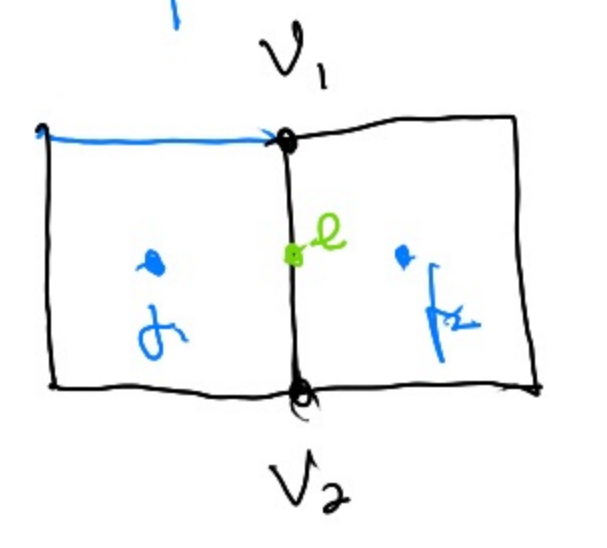 V₁
e
f
f₂
V₂